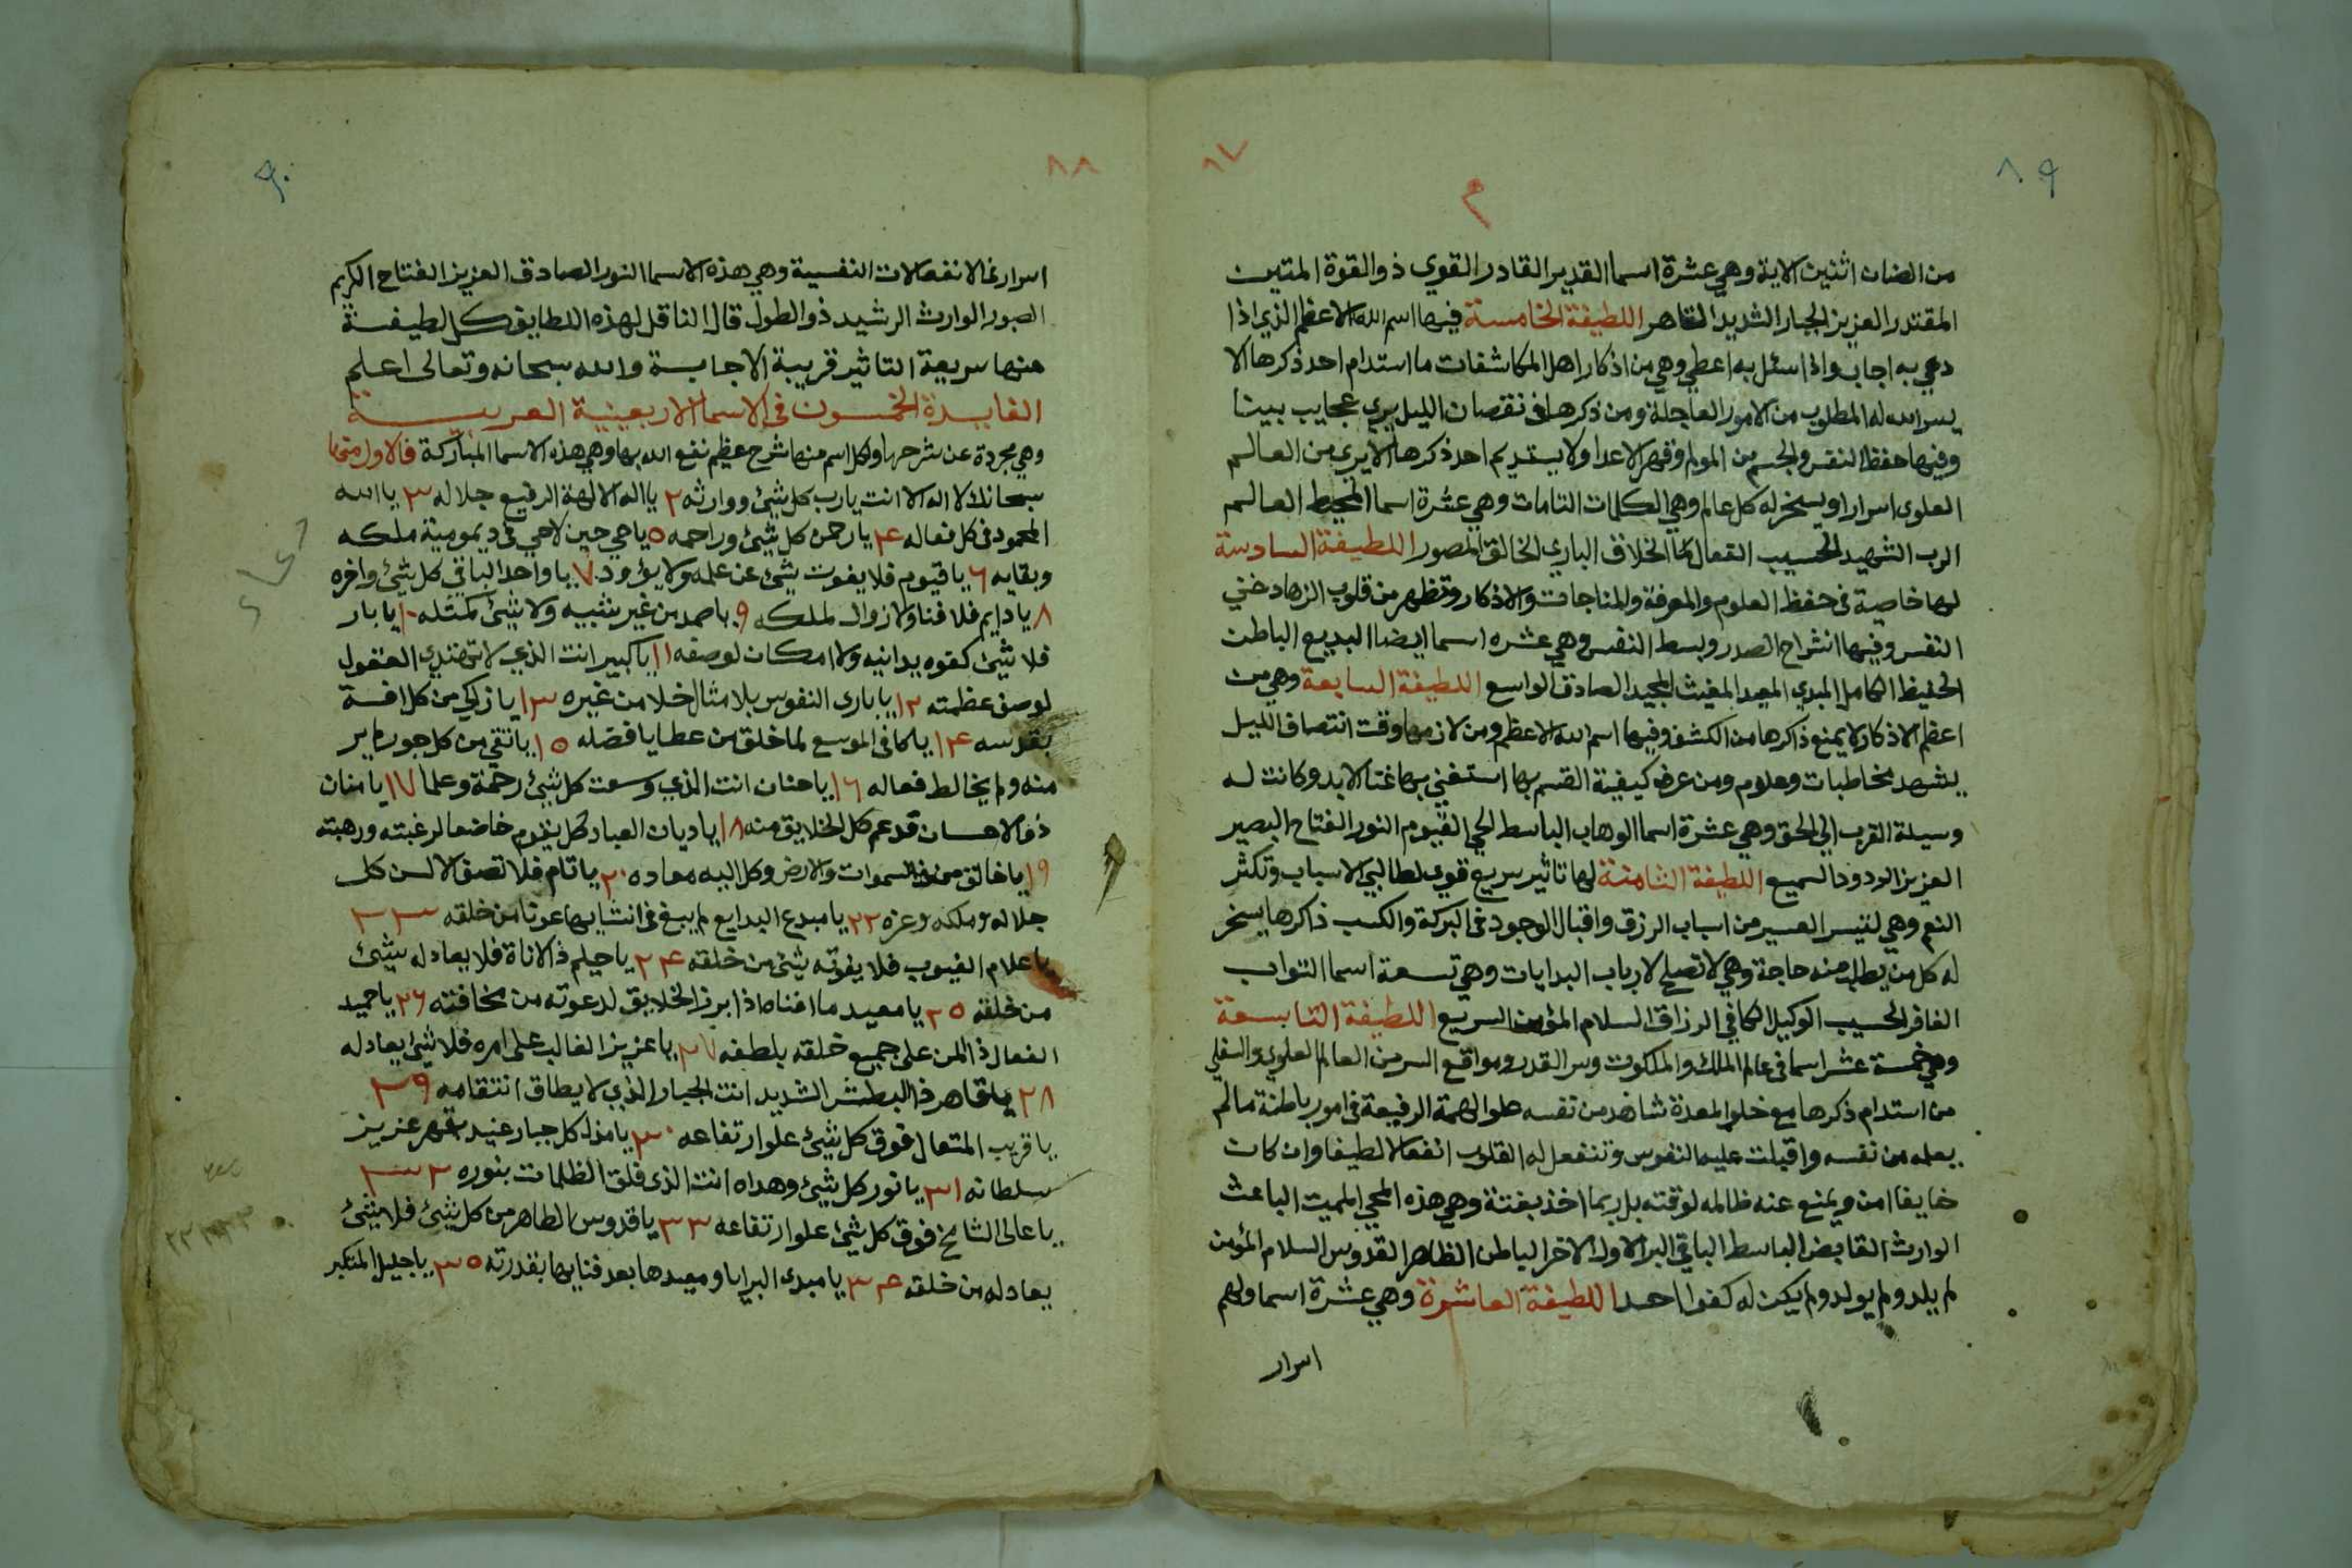 ٨٩
٨٧
م
من الضان اثنين الاية وهي عشرة اسما القدير القادر القوي ذو القوة المتين
المقتدر العزيز الجبار الشديد القاهر اللطيفة الخامسة فيها اسم الله الاعظم الذي اذا
دعي به اجاب واذا سئل به اعطي وهي من اذكار اهل المكاشفات ما استدام احد ذكرها الا
يسر الله له المطلوب من الامور العاجلة ومن ذكرها في نقصان الليل يري عجايب بينا
وفيها حفظ النفس والجسم من المولم وقهر الاعدا ولا يستديم احد ذكرها الا يري من العالم
العلوي اسرارا ويسخر له كل عالم وهي الكلمات التامات وهي عشرة اسما المحيط العالم
الرب الشهيد الحسيب الفعال الخلاق الباري الخالق المصور اللطيفة السادسة
لها خاصية في حفظ العلوم والمعرفة والمناجات والاذكار وتظهر من قلوب الزهاد خفي
النفس وفيها انشراح الصدر وبسط النفس وهي عشره اسما ايضا البديع الباطن
الحفيظ الكامل المبدي المعيد المغيث المجيد الصادق الواسع اللطيفة السابعة وهي من
اعظم الاذكار لا يمنع ذاكرها من الكشف وفيها اسم الله الاعظم ومن لازمها وقت انتصاف الليل
يشهد مخاطبات وعلوم ومن عرف كيفية القسم بها استغني بها غنا الابد وكانت له
وسيلة القرب الي الحق وهي عشرة اسما الوهاب الباسط الحي القيوم النور الفتاح البصير
العزيز الودود السميع اللطيفة الثامنة لها تاثير سريع قوي لطالبي الاسباب وتكثر
النعم وهي لتيسر العسير من اسباب الرزق واقبال الوجود في البركة والكسب ذاكرها يسخر
له كل من يطلب منه حاجة وهي لا تصلح لارباب البدايات وهي تسعة اسما التواب
الغافر الحسيب الوكيل الكافي الرزاق السلام المؤمن السريع اللطيفة التاسعة
وهي خمسة عشر اسما في عالم الملك والملكوت وسر القدر ومواقع السر من العالم العلوي والسفلي
من استدام ذكرها مع خلو المعدة شاهد من نفسه علو الهمة الرفيعة في امور باطنة مالم
يعلمه من نفسه واقبلت عليه النفوس وتنفعل له القلوب انفعالا لطيفا وان كان
خايفا امن ويمنع عنه ظالمه لوقته بل ربما اخذ بغتة وهي هذه المحي المميت الباعث
الوارث القابض الباسط الباقي البر الاول الاخر الباطن الظاهر القدوس السلام المؤمن
لم يلد ولم يولد ولم يكن له كفوا احد اللطيفة العاشرة وهي عشرة اسما ولهم
اسرار
٨٨
٩٠
اسرار في الانفعالات النفسية وهي هذه الاسما النور الصادق العزيز الفتاح الكريم
الصبور الوارث الرشيد ذو الطول قال الناقل لهذه اللطايف كل لطيفة
منها سريعة التاثير قريبة الاجابة والله سبحانه وتعالى اعلم
الفايدة الخمسون في الاسما الاربعينية العربية
وهي مجردة عن شرحها ولكل اسم منها شرح عظيم نفع الله بها وهي هذه الاسما المباركة فالاول منها
سبحانك لا اله الا انت يارب كل شيئ ووارثه ٢ يااله الالهة الرفيع جلاله ٣ يا الله
المحمود في كل فعاله ۴ يارحمن كل شيئ وراحمه ٥ ياحي حين لاحي في ديمومية ملكه
وبقايه ٦ ياقيوم فلا يفوت شيئ عن علمه ولا يؤود ٧ يا واحد الباقي كل شيئ واخره
٨ يادايم فلا فنا ولا زوال لملكه ٩ ياصمد من غير شبيه ولا شيئ كمثله ١٠ يابار
فلا شيئ كفوه يدانيه ولا امكان لوصفه ١١ ياكبير انت الذي لا تهتدي العقول
لوصف عظمته ١٢ ياباري النفوس بلا مثال خلا من غيره ١٣ يازكي من كل افة
بقدسه ١۴ ياكافي الموسع لما خلق من عطايا فضله ١٥ يانقي من كل جور لم ير
منه ولم يخالط فعاله ١٦ ياحنان انت الذي وسعت كل شيئ رحمة وعلما ١٧ يامنان
ذو الاحسان قد عم كل الخلايق منه ١٨ ياديان العباد كل يقوم خاضعا لرغبته ورهبته
١٩ ياخالق من في السموات والارض وكل اليه معاده ٢٠ ياتام فلا تصف الالسن كل
جلاله وملكه وعزه ٢٢ يامبدع البدايع لم يبغ في انشايها عونا من خلقه ٢٣
ياعلام الغيوب فلا يفوته شيئ من خلقه ٢۴ ياحليم ذا الاناة فلا يعادله شيئ
من خلقه ٢٥ يامعيد ما افناه اذا برز الخلايق لدعوته من مخافته ٢٦ ياحميد
الفعال ذا المن على جميع خلقه بلطفه ٢٧ ياعزيز الغالب على امره فلا شيئ يعادله
٢٨ ياقاهر ذا البطش الشديد انت الجبار الذي لا يطاق انتقامه ٢٩
ياقريب المتعال فوق كل شيئ علو ارتفاعه ٣٠ يامذل كل جبار عنيد بقهر عزيز
سلطانه ٣١ يانور كل شيئ وهداه انت الذي فلق الظلمات بنوره ٣٢
ياعالى الشامخ فوق كل شيئ علو ارتفاعه ٣٣ ياقدوس الطاهر من كل شيئ فلا شيئ
يعادله من خلقه ٣۴ يامبدي البرايا ومعيدها بعد فنايها بقدرته ٣٥ ياجليل المتكبر